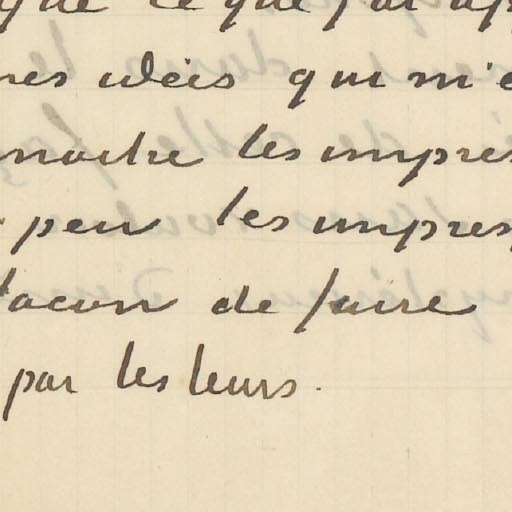 que ce que j'ai
idées qui m'
les impres
peu les impres
façon de faire
par les leurs.